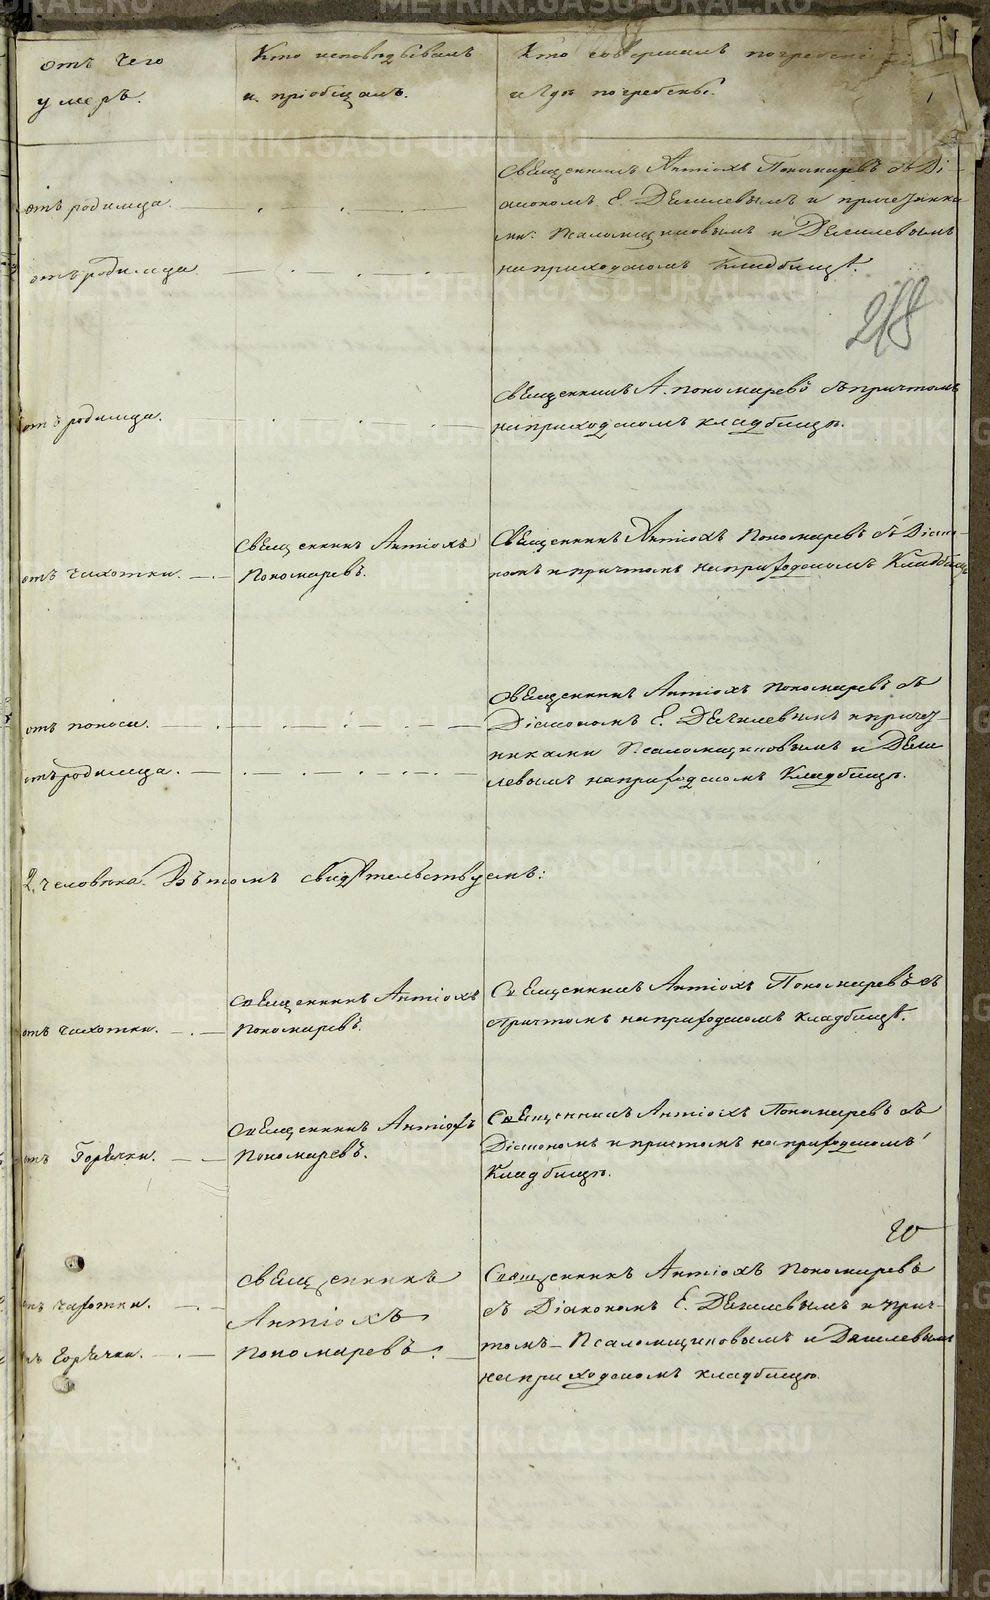 отъ чего
умеръ.
Кто исповѣдывалъ
и пріобщалъ.
Кто совершалъ погребеніе
и гдѣ погребены.
отъ родимца.
Священникъ Антіохъ Пономаревъ съ Ді-
акономъ Е. и причетника-
ми: Псаломщиковымъ и
на приходскомъ кладбищѣ.
отъ родимца
218
отъ родимца.
Священникъ А. Пономаревъ съ причтомъ
на приходскомъ кладбищѣ.
отъ чахотки.
Священникъ Антіохъ
Пономаревъ.
Священникъ Антіохъ Пономаревъ съ Діако-
номъ и причтомъ на приходскомъ кладбищѣ
отъ поноса.
отъ родимца.
Священникъ Антіохъ Пономаревъ съ
Діакономъ Е. и причет-
никами Псаломщиковымъ и
на приходскомъ кладбищѣ.
2. человѣка. Въ томъ свидѣтельствуемъ:
отъ чахотки.
Священникъ Антіохъ
Пономаревъ.
Священникъ Антіохъ Пономаревъ съ
причтомъ на приходскомъ кладбищѣ.
отъ Горячки.
Священникъ Антіохъ
Пономаревъ.
Священникъ Антіохъ Пономаревъ съ
Діакономъ и причтомъ на приходскомъ
кладбищѣ.
отъ чахотки.
отъ Горячки.
Священникъ
Антіохъ
Пономаревъ.
Священникъ Антіохъ Пономаревъ
съ Діакономъ Е. и прич-
томъ – Псаломщиковымъ и
на приходскомъ кладбищѣ.
METRIKI.GASO-URAL.RU